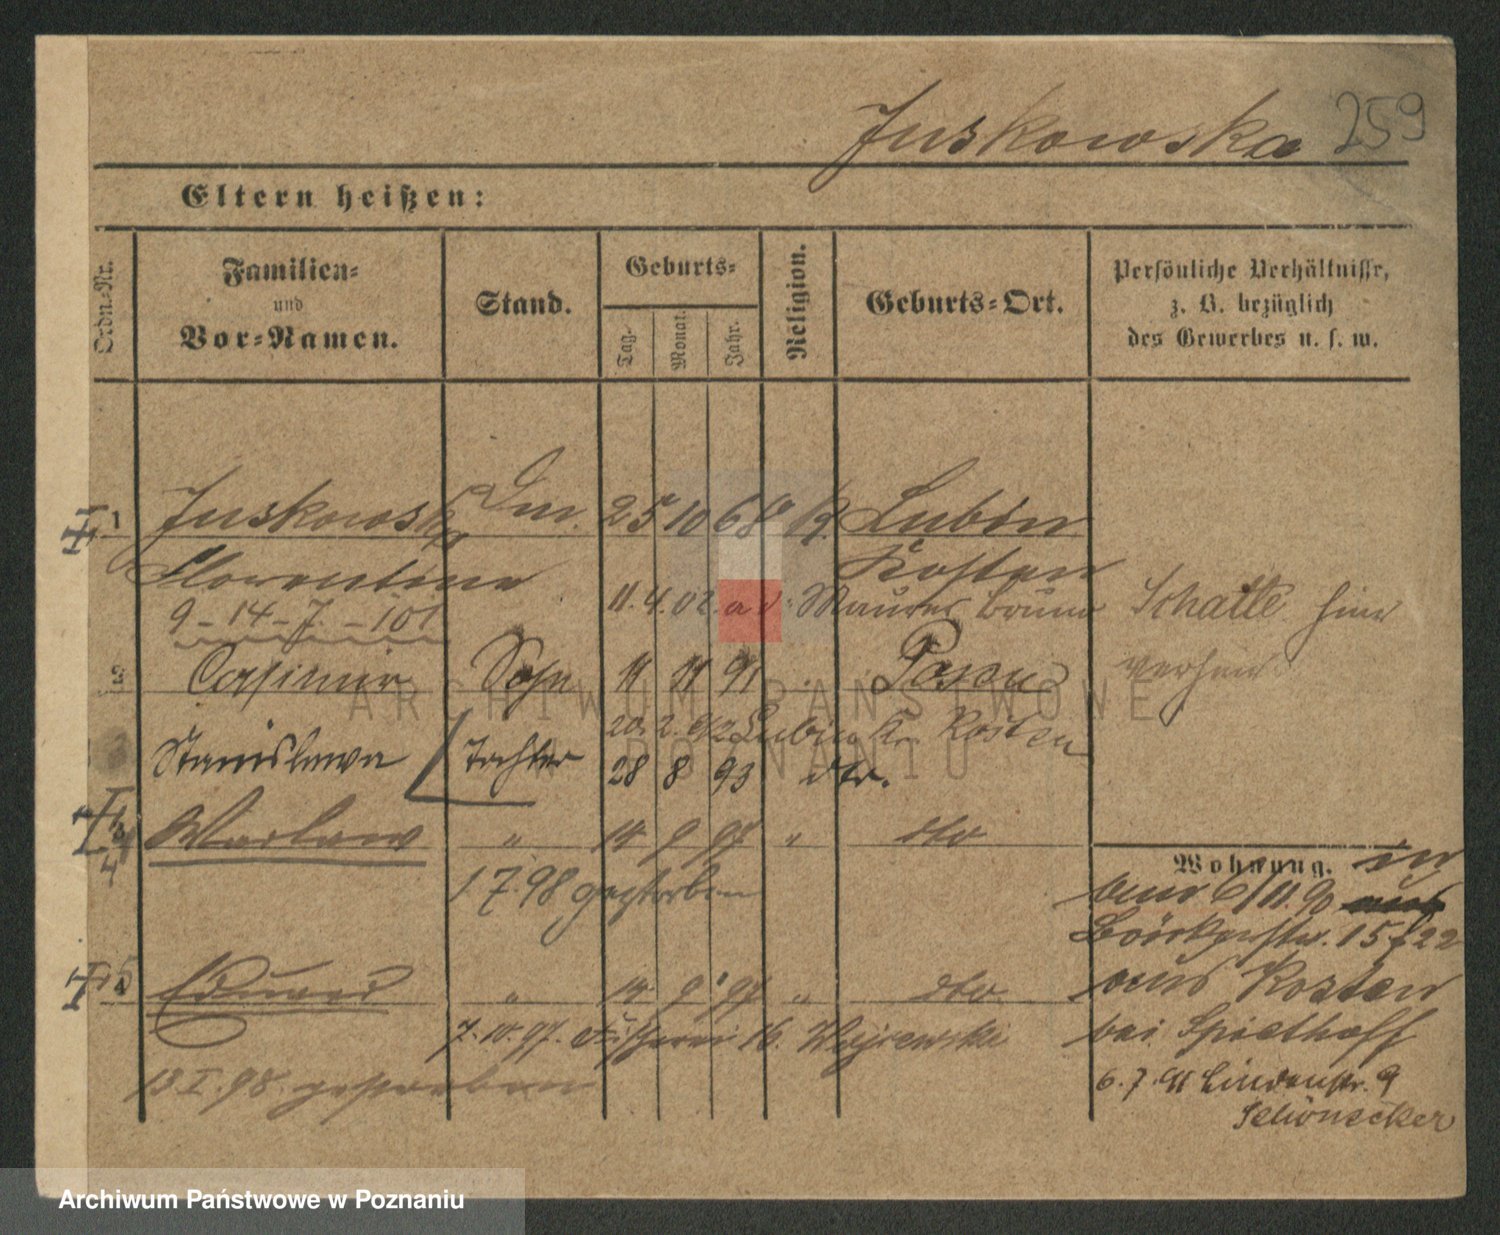 Juskowska 259
Eltern heißen:
Ordn.-Nr.
Familien-
und
Vor-Namen.
Stand.
Geburts-
Tag.
Monat.
Jahr.
Religion.
Geburts-Ort.
Persönliche Verhältnisse,
z. B. bezüglich
des Gewerbes u. s. w.
1 Juskowska 25 10 68 K. Lubin
Florentine Kosten
11. 4. 02. Maurer
9-14-7-101
2 Casimir Sohn 11 11 91 Posen
20. 2. 92 Lubin Kr. Kosten
Stanislawa Tochter 28 8 93 dto.
3 Waclaw " 14 9 97 " dto
4
1 7. 98 gestorben
5 Eduard " 14 9 97 " dto.
7. 10. 97. Fischerei 16.
13. I. 98. gestorben
Wohnung.
6/11. 90
15 f 22
aus Kosten
bei Spielhoff
6. 7. 91 Lindenstr. 9
Schönecker
ARCHIWUM PAŃSTWOWE
W POZNANIU
Archiwum Państwowe w Poznaniu